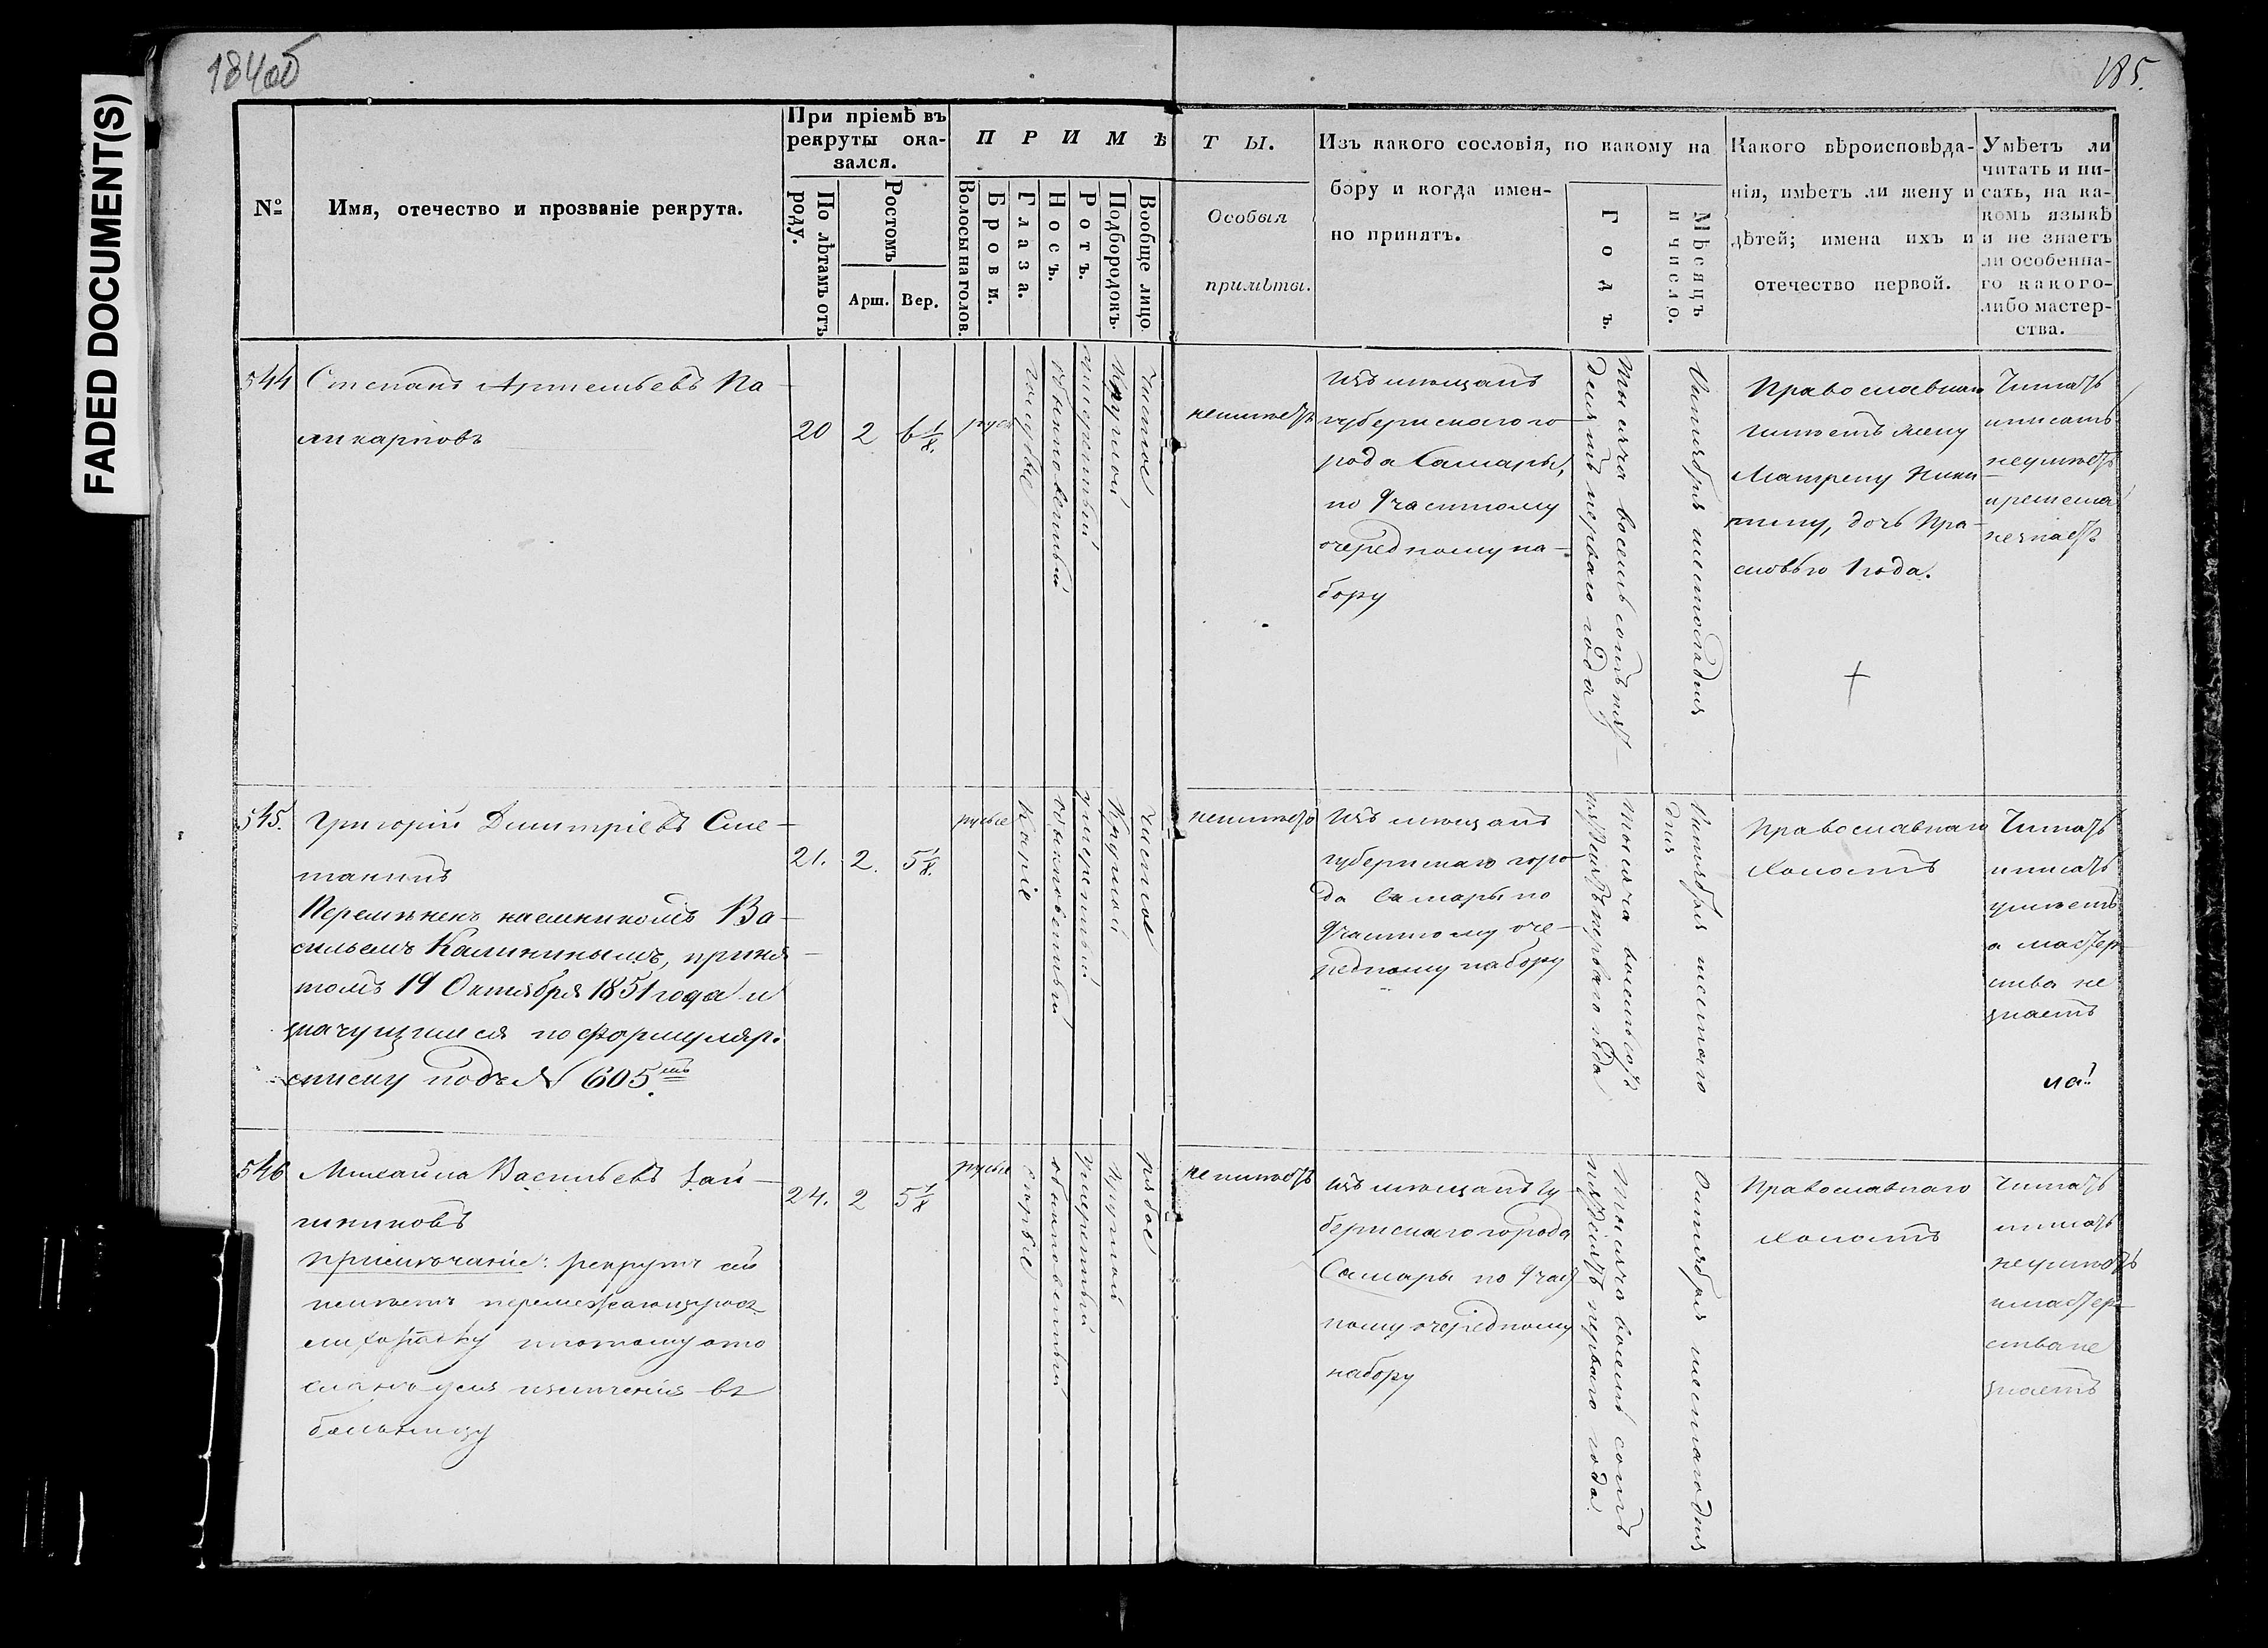 184об
185.
FADED DOCUMENT(S)
№
Имя, отечество и прозваніе рекрута.
При пріемѣ въ
рекруты ока-
зался.
По лѣтамъ отъ
роду.
Ростомъ
Арш.
Вер.
ПРИМѢ
ТЫ.
Волосы на голов.
Брови.
Глаза.
Носъ.
Ротъ.
Подбородокъ.
Вообще лицо.
Особыя
примѣты.
Изъ какого сословія, по какому на
бору и когда имен-
но принятъ.
Годъ.
Мѣсяцъ
и число.
Какого вѣроисповѣда-
нія, имѣетъ ли жену и
дѣтей; имена ихъ и
отечество первой.
Умѣетъ ли
читать и пи-
сать, на ка-
комъ языкѣ
и не знаетъ
ли особенна-
го какого-
либо мастер-
ства.
544
Степанъ Артемьевъ По
ликарповъ
20
2
6 1/8.
рус
голубые
обыкновенный
умеренный
Круглой
Чистое
неимѣетъ
Изъ мѣщанъ
губернскаго го
рода Самары,
по Частному
очередному на-
бору
Тысяча восемь сотъ пят-
десятъ перваго года
Октября шестого дня
Православнаго
имѣетъ жену
Матрену Ники
тину, дочь Пра-
сковью 1 года.
Читать
и писать
неумѣетъ
и ремесла
незнаетъ
545.
Григорій Дмитріевъ Сме-
танинъ
Перемѣненъ наемникомъ Ва-
сильемъ Калининымъ, приня-
томъ 19 Октября 1851 года и
значущимся по формуляр.
списку подъ № 605.мъ
21.
2.
5 1/8.
русые
Каріе
обыкновенный
умеренный
Круглой
Чистое
неимѣетъ
Изъ мѣщанъ
губернскаго горо-
да Самары по
Частному оче-
редному набору
Тысяча восемьсотъ
пятдесятъ перваго года
Октября шестаго
дня
Православнаго
холостъ
Читать
и писать
умѣетъ
а мастер-
ства не
знаетъ
546
Михайла Васильевъ Зай-
чиковъ
примѣчаніе: рекрутъ сей
имѣетъ перемежающуюся
лихорадку и потому ото
сланъ для излеченія въ
больницу
24.
2
5 1/8
русые
серые
обыкновенный
умеренный
Круглой
рябое
неимѣетъ
Изъ мѣщанъ гу-
бернскаго города
Самары по Част
ному очередному
набору
Тысяча восемь сотъ
пятдесятъ перваго года
Октября шестаго дня
Православнаго
холостъ
Читать
и писать
неумѣетъ
и мастер-
ства не
знаетъ